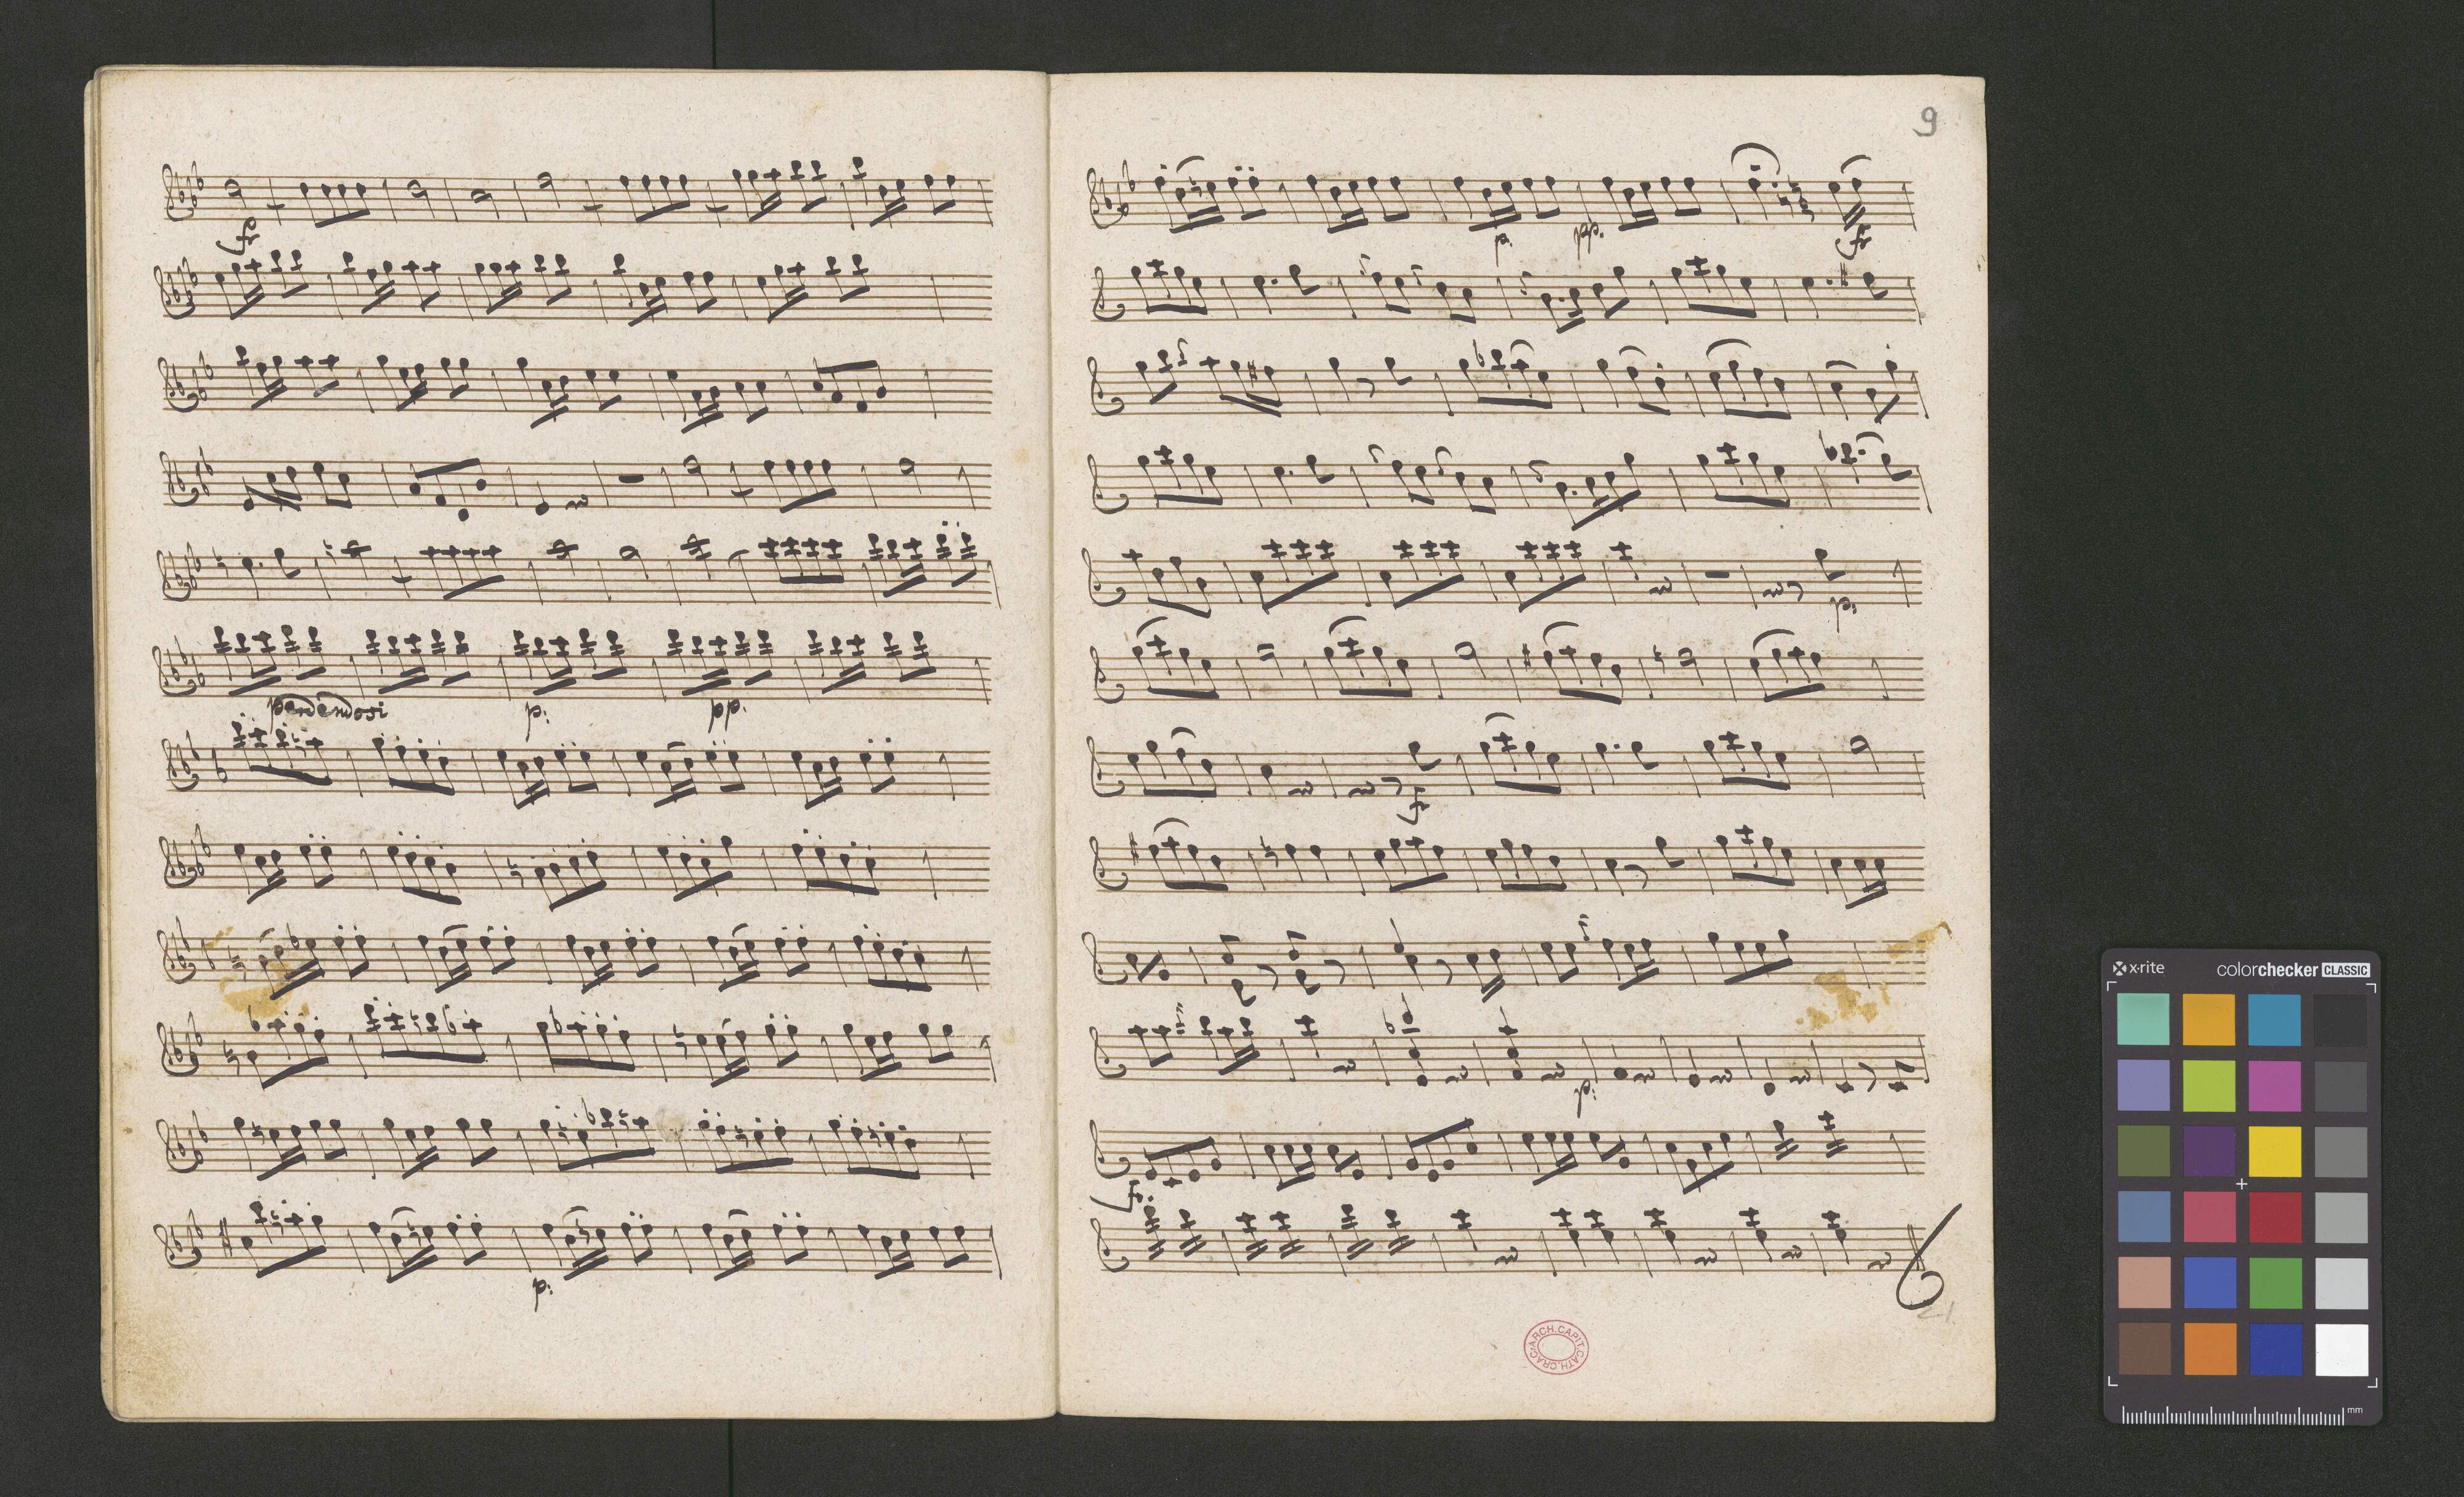 fr
perdendosi
p:
pp.
p:
9
p.
pp.
fr
p:
fr
p:
fr.
21.
ARCH.CAPIT.CATH.CRAC.
x-rite
colorchecker CLASSIC
mm